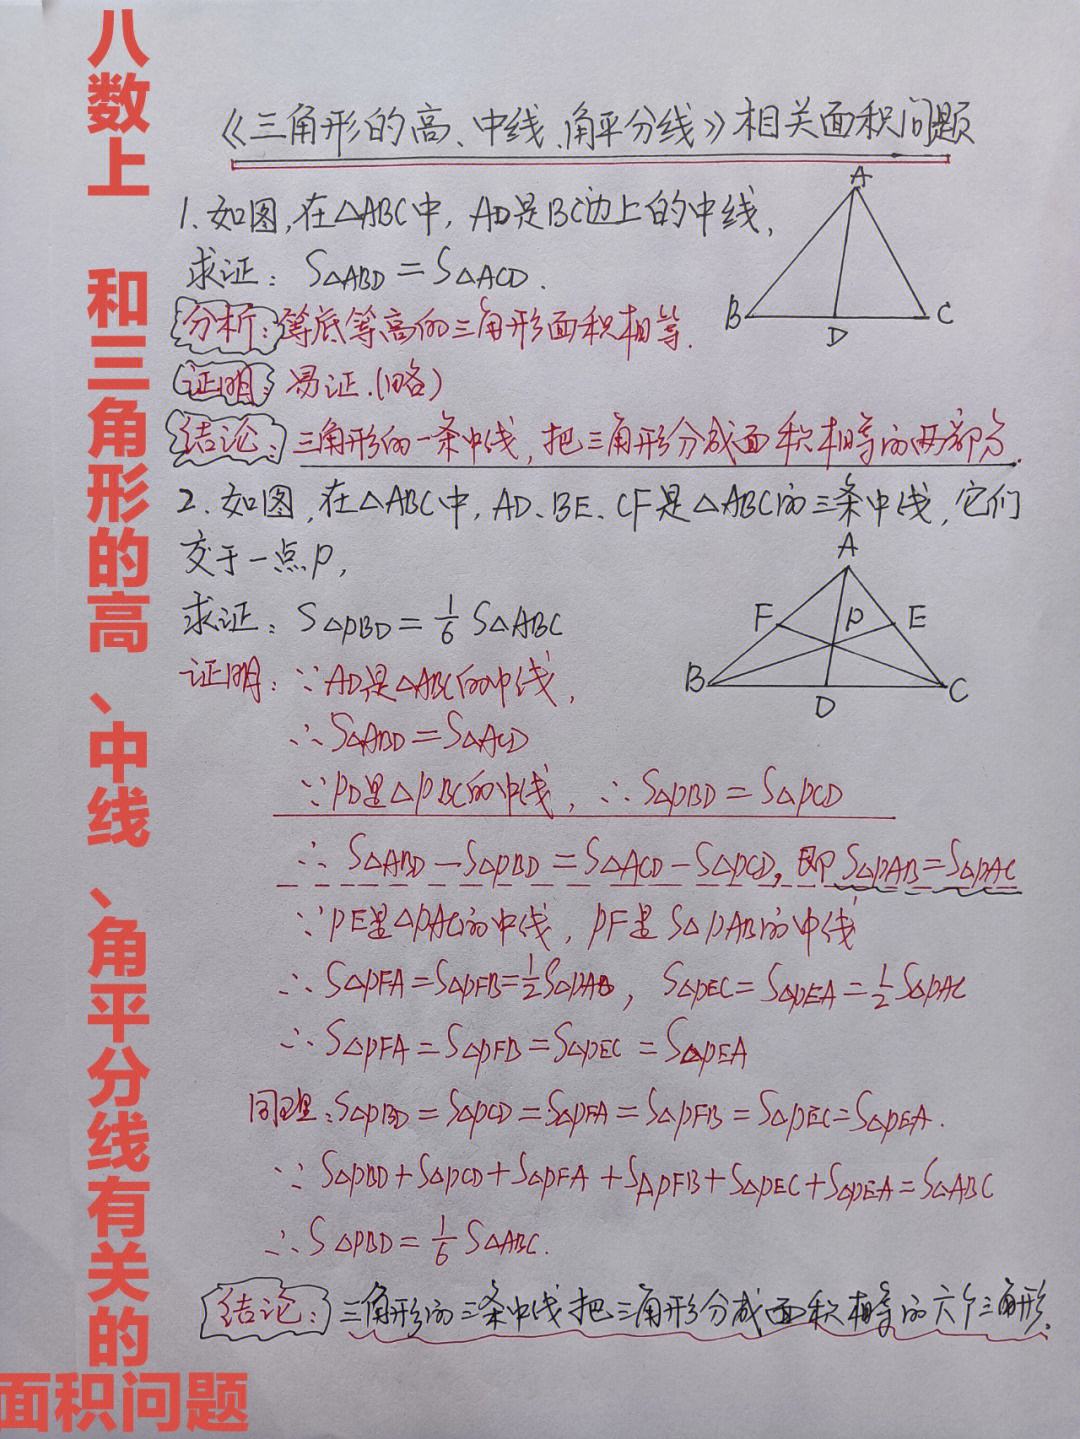 八数上 和三角形的高、中线、角平分线有关的
面积问题
《三角形的高、中线、角平分线》相关面积问题
1.如图,在△ABC中,AD是BC边上的中线,
求证: S△ABD=S△ACD.
分析:等底等高的三角形面积相等.
证明:易证.(略)
结论:三角形的一条中线,把三角形分成面积相等的两部分.
A
B
D
C
2.如图,在△ABC中,AD、BE、CF是△ABC的三条中线,它们
交于一点P,
求证: S△PBD=1/6 S△ABC
A
F
P
E
B
D
C
证明:∵AD是△ABC的中线,
∴S△ABD=S△ACD
∵PD是△PBC的中线,∴S△PBD=S△PCD
∴S△ABD-S△PBD=S△ACD-S△PCD,即S△PAB=S△PAC
∵PE是△PAC的中线,PF是S△PAB的中线
∴S△PFA=S△PFB=1/2S△PAB, S△PEC=S△PEA=1/2S△PAC
∴S△PFA=S△PFB=S△PEC=S△PEA
同理:S△PBD=S△PCD=S△PFA=S△PFB=S△PEC=S△PEA.
∵S△PBD+S△PCD+S△PFA+S△PFB+S△PEC+S△PEA=S△ABC
∴S△PBD=1/6 S△ABC.
结论:三角形的三条中线把三角形分成面积相等的六个三角形.